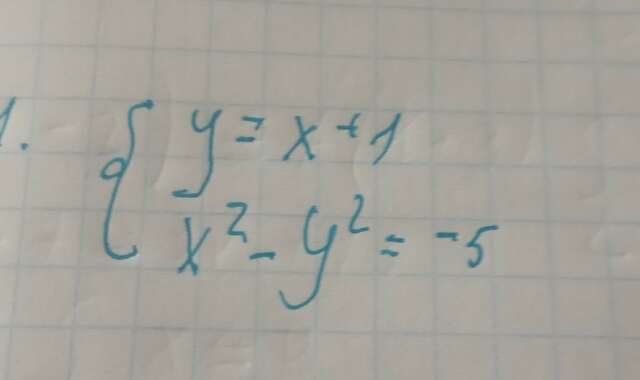 1. { y = x + 1
x² - y² = -5